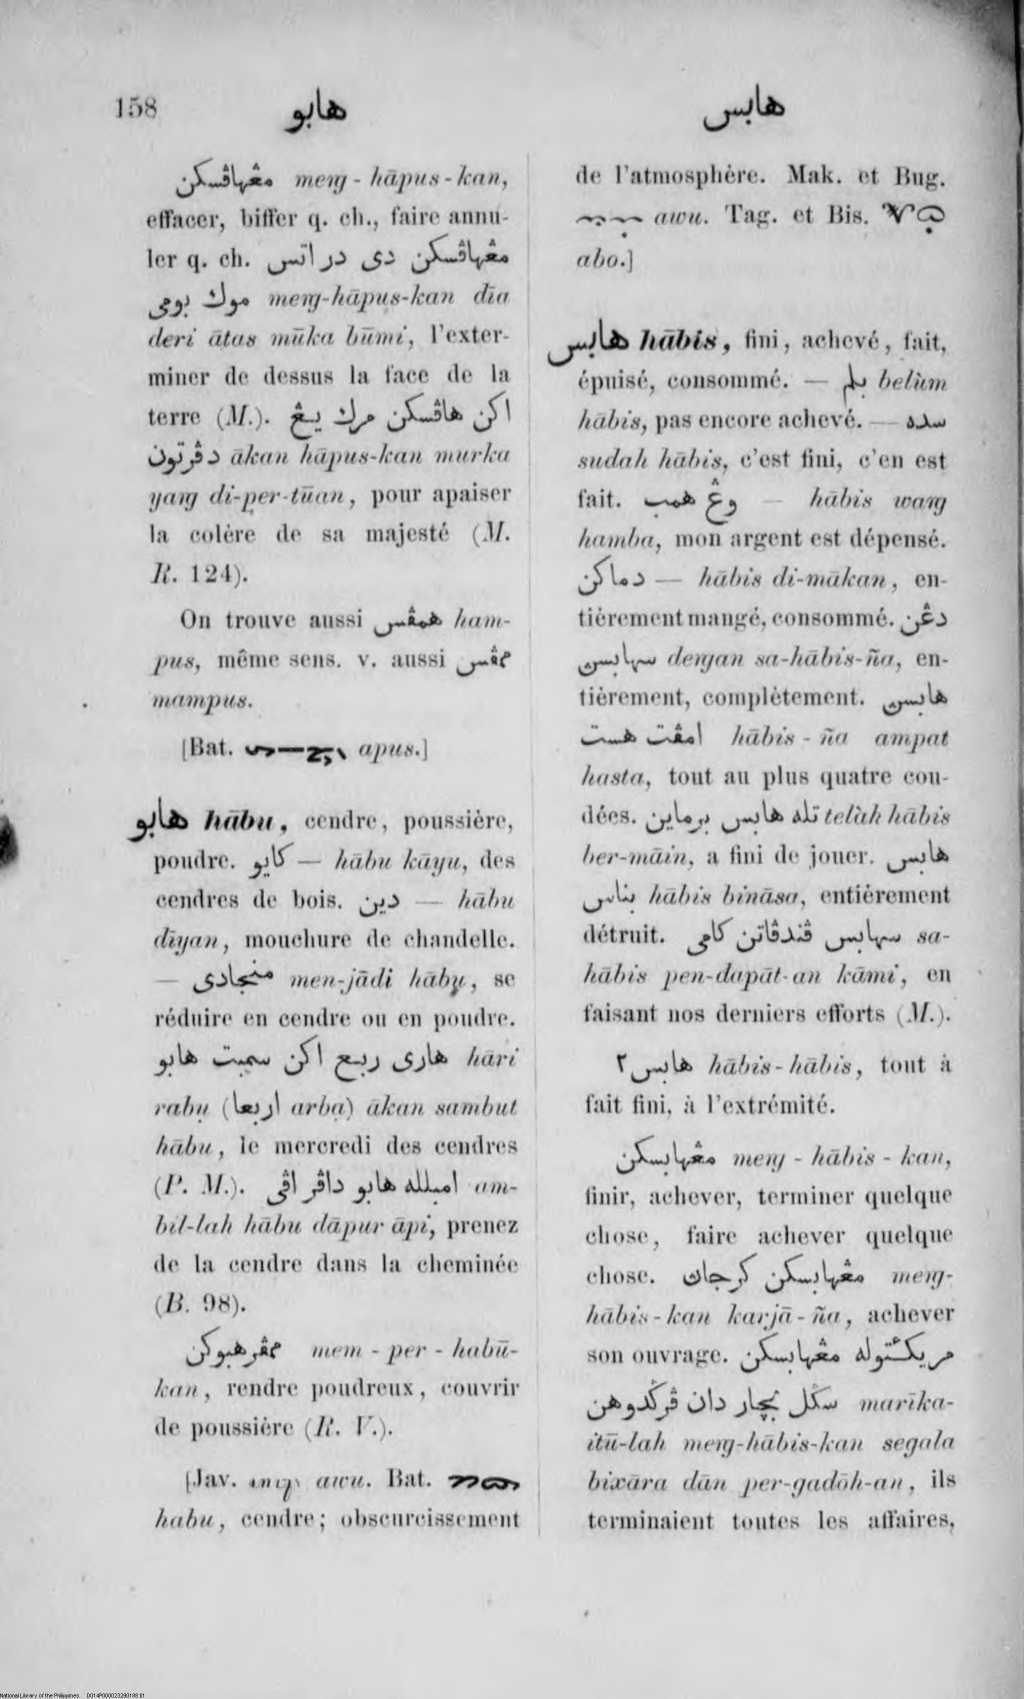 158 هابو هابس
مڠهاڤسکن meng - hāpus - kan,
effacer, biffer q. ch., faire annu-
ler q. ch. مڠهاڤسکن دی در اتس
موک بومی meng-hāpus-kan dīa
deri ātas mūka būmi, l'exter-
miner de dessus la face de la
terre (M.). اکن هاڤسکن مرک يڠ
دڤرتون ākan hāpus-kan murka
yang di-per-tūan, pour apaiser
la colère de sa majesté (M.
R. 124).
On trouve aussi همڤس ham-
pus, même sens. v. aussi ممڤس
mampus.
[Bat. apus.]
هابو hābu, cendre, poussière,
poudre. کايو — hābu kāyu, des
cendres de bois. دين — hābu
dīyan, mouchure de chandelle.
— منجادی men-jādi hābu, se
réduire en cendre ou en poudre.
هاری ربع اکن سمبت هابو hāri
rabụ (اربعا arbạ) ākan sambut
hābu, le mercredi des cendres
(P. M.). امبلله هابو داڤر اڤی am-
bil-lah hābu dāpur āpi, prenez
de la cendre dans la cheminée
(B. 98).
ممڤرهبوکن mem - per - habū-
kan, rendre poudreux, couvrir
de poussière (R. V.).
[Jav. awu. Bat.
habu, cendre; obscurcissement
de l'atmosphère. Mak. et Bug.
awu. Tag. et Bis.
abo.]
هابس hābis, fini, achevé, fait,
épuisé, consommé. — بلم belùm
hābis, pas encore achevé. — سده
sudah hābis, c'est fini, c'en est
fait. وڠ همب — hābis wang
hamba, mon argent est dépensé.
دماکن — hābis di-mākan, en-
tièrement mangé, consommé. دڠن
سهابسن dengan sa-hābis-ña, en-
tièrement, complètement. هابسن
امڤت هست hābis - ña ampat
hasta, tout au plus quatre cou-
dées. تله هابس برماين telàh hābis
ber-māin, a fini de jouer. هابس
بناس hābis bināsa, entièrement
détruit. سهابس ڤندڤاتن کامی sa-
hābis pen-dapāt-an kāmi, en
faisant nos derniers efforts (M.).
هابس٢ hābis-hābis, tout à
fait fini, à l'extrémité.
مڠهابسکن meng - hābis - kan,
finir, achever, terminer quelque
chose, faire achever quelque
chose. مڠهابسکن کرجان meng-
hābis-kan karjā-ña, achever
son ouvrage. مريکئتوله مڠهابسکن
سڬل بچار دان ڤرڬدوهن marīka-
itū-lah meng-hābis-kan segala
bixāra dān per-gadōh-an, ils
terminaient toutes les affaires,
National Library of the Philippines